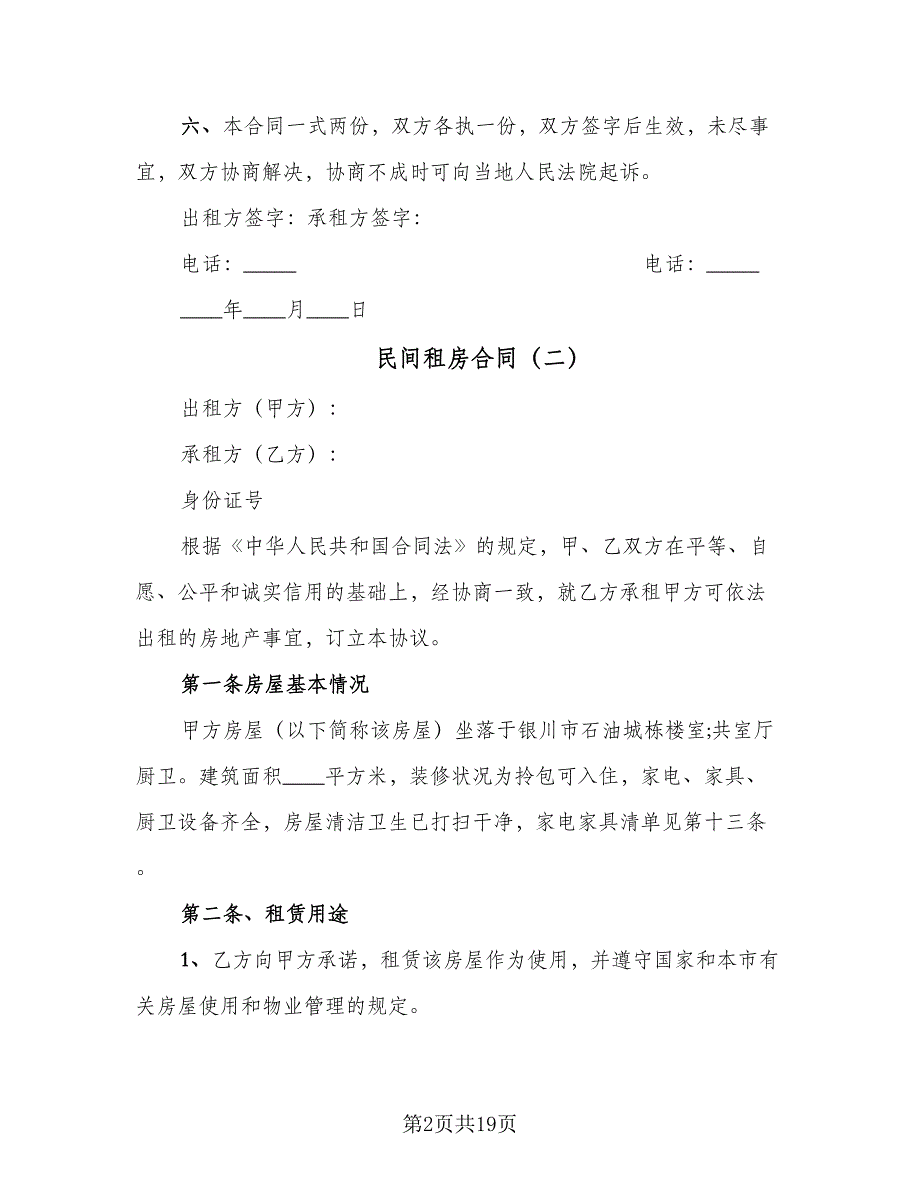 六、本合同一式两份，双方各执一份，双方签字后生效，未尽事
宜，双方协商解决，协商不成时可向当地人民法院起诉。
出租方签字：承租方签字：
电话：_____ 电话：_____
____年____月____日
民间租房合同（二）
出租方（甲方）：
承租方（乙方）：
身份证号
根据《中华人民共和国合同法》的规定，甲、乙双方在平等、自
愿、公平和诚实信用的基础上，经协商一致，就乙方承租甲方可依法
出租的房地产事宜，订立本协议。
第一条房屋基本情况
甲方房屋（以下简称该房屋）坐落于银川市石油城栋楼室;共室厅
厨卫。建筑面积____平方米，装修状况为拎包可入住，家电、家具、
厨卫设备齐全，房屋清洁卫生已打扫干净，家电家具清单见第十三条
。
第二条、租赁用途
1、乙方向甲方承诺，租赁该房屋作为使用，并遵守国家和本市有
关房屋使用和物业管理的规定。
第2页共19页